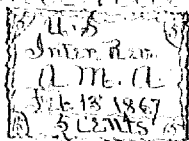 U. S
Inter. Rev.
A. M. A.
Feb. 13 1867
5 cents